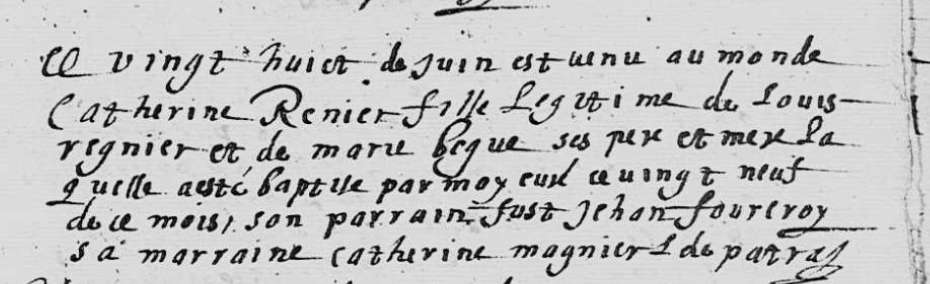 ce vingt huict de juin est venu au monde
Catherine Renier fille legitime de Louis
regnier et de marie begue ses pere et mere la
quelle aesté baptise par moy curé ce vingt neuf
de ce mois, son parrain fust Jehan fourcroy
sa marraine Catherine magnier L de patras